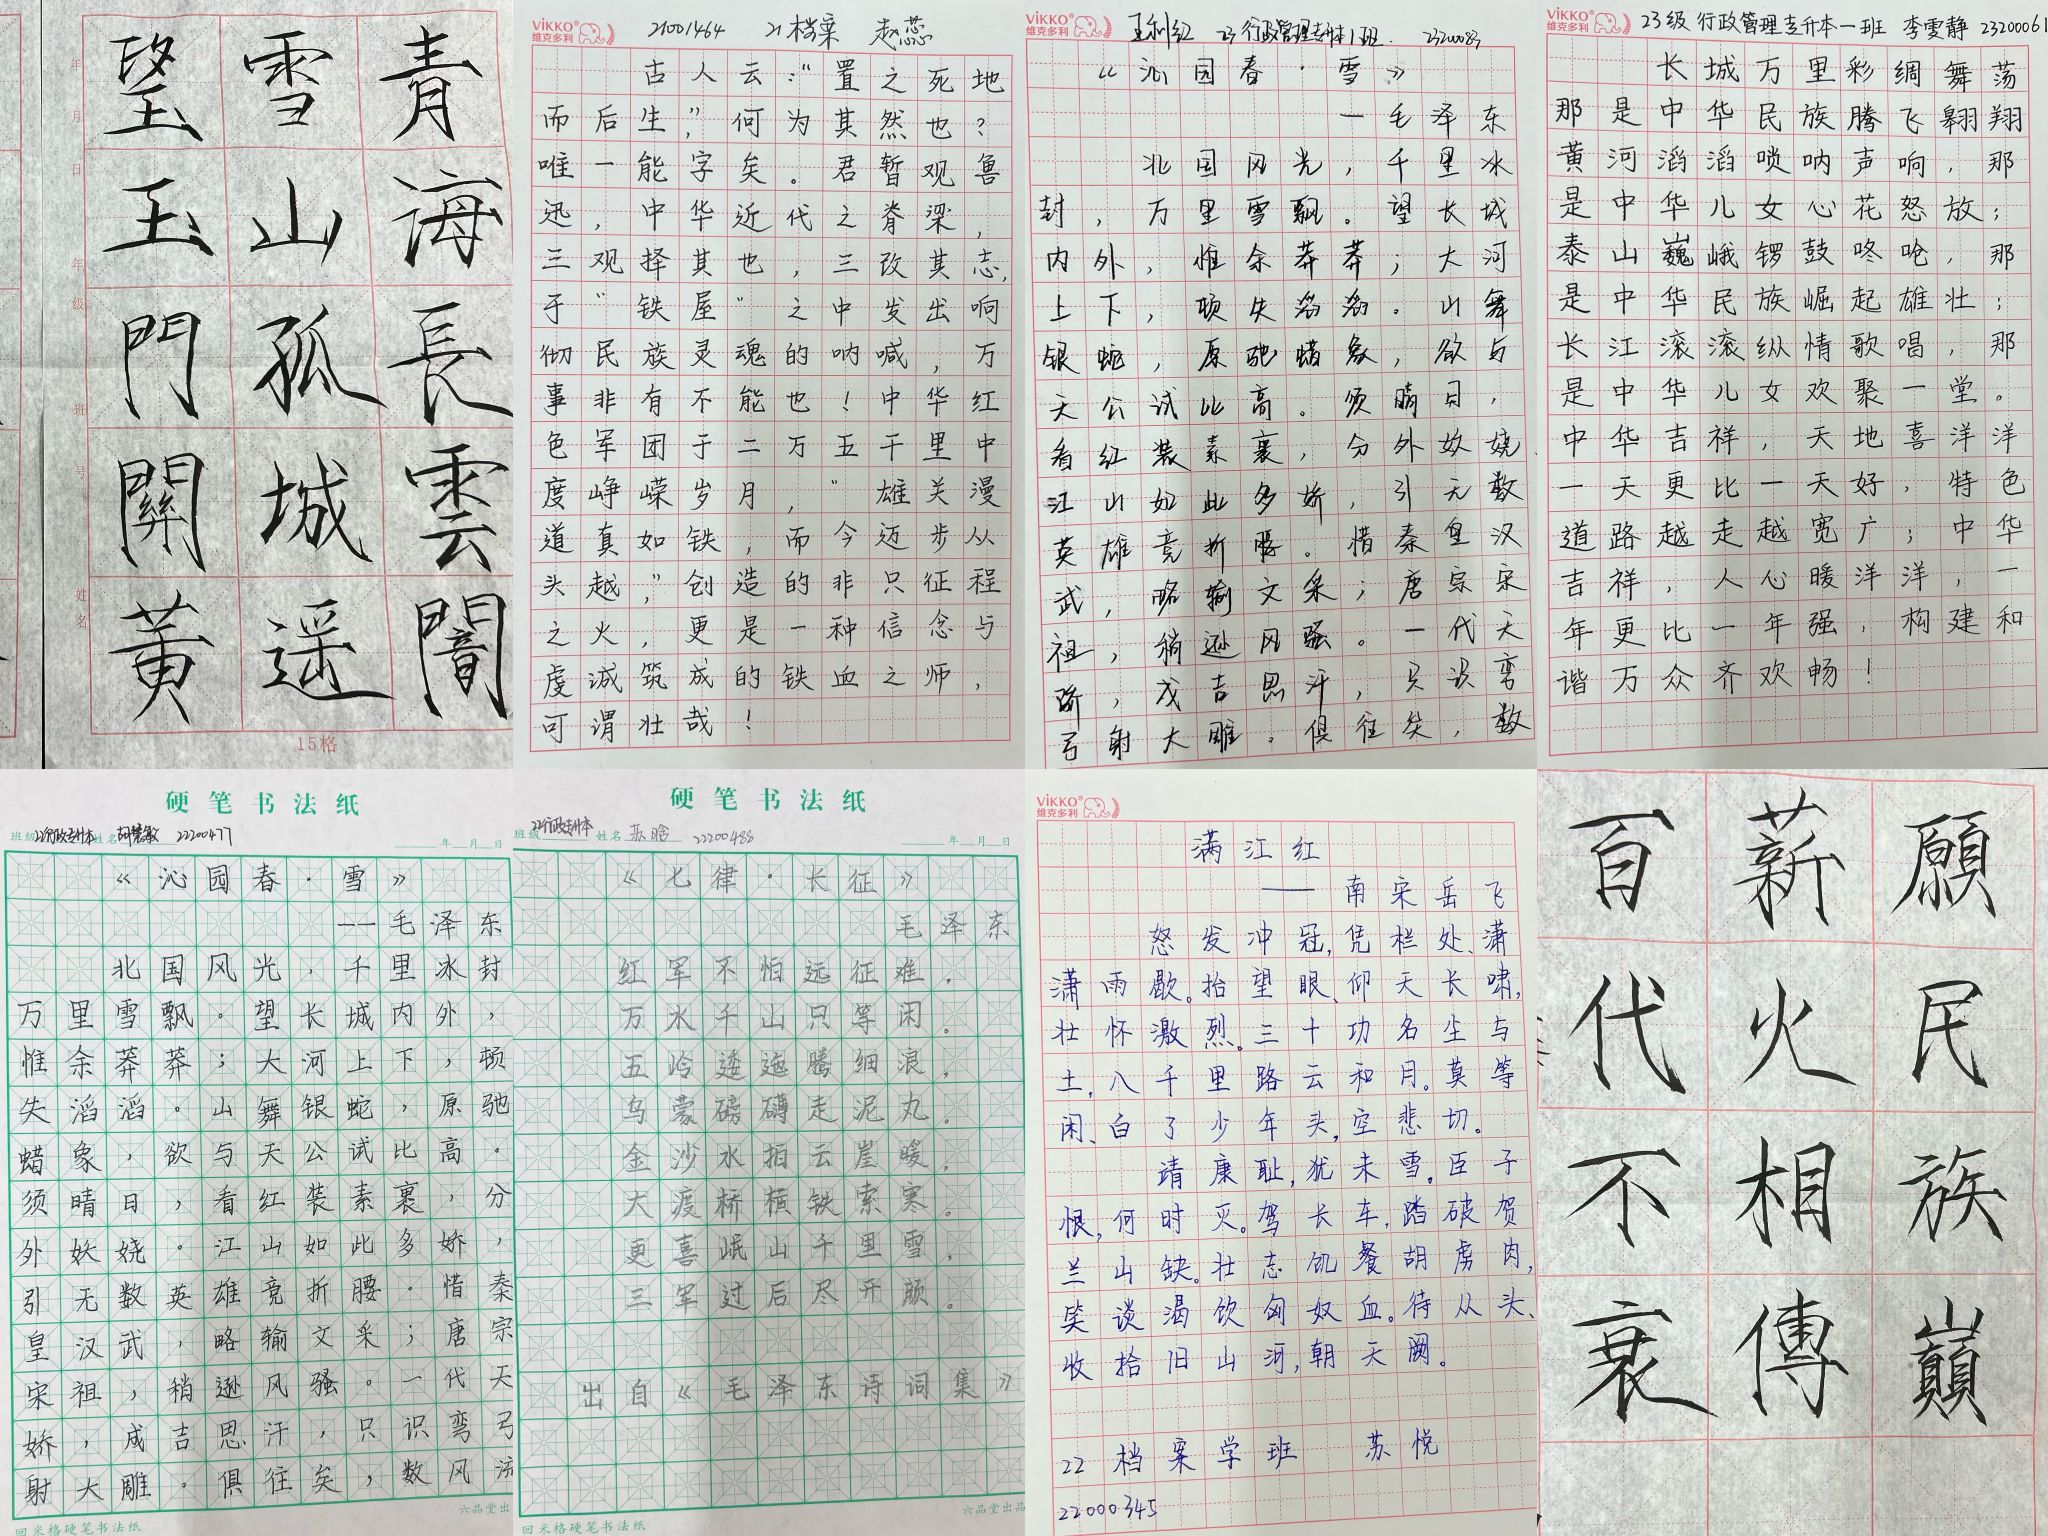 青海長雲闇
雪山孤城遥
望玉門關黄
年 月 日 年级 班 号 姓名
15格
ViKKO
维克多利
21001464 21档案 赵蕊
古人云:"置之死地
而后生",何为其然也?
唯一能字矣。君暂观鲁
迅,中华近代之脊梁,
三观择其也,三改其志,
于"铁屋"之中发出响
彻民族灵魂的呐喊,万
事非有不能也!中华红
色军团于二万五千里中
度峥嵘岁月,"雄关漫
道真如铁,而今迈步从
头越",创造的非只征程
之火,更是一种信念与
虔诚筑成的铁血之师,
可谓壮哉!
ViKKO
维克多利
王利红 23行政管理专升本1班. 2320083
《沁园春·雪》
一毛泽东
北国风光,千里冰
封,万里雪飘。望长城
内外,惟余莽莽;大河
上下,顿失滔滔。山舞
银蛇,原驰蜡象,欲与
天公试比高。须晴日,
看红装素裹,分外妖娆
江山如此多娇,引无数
英雄竞折腰。惜秦皇汉
武,略输文采;唐宗宋
祖,稍逊风骚。一代天
骄,成吉思汗,只识弯
弓射大雕。俱往矣,数
ViKKO
维克多利
23级行政管理专升本一班 李雯静 23200061
长城万里彩绸舞荡
那是中华民族腾飞翱翔
黄河滔滔唢呐声响,那
是中华儿女心花怒放;
泰山巍峨锣鼓咚呛,那
是中华民族崛起雄壮;
长江滚滚纵情歌唱,那
是中华儿女欢聚一堂。
中华吉祥,天地喜洋洋
一天更比一天好,特色
道路越走越宽广;中华
吉祥,人心暖洋洋,一
年更比一年强,构建和
谐万众齐欢畅!
硬笔书法纸
班级 22行政专升本 姓名 胡慧敏 22200477 年 月 日
《沁园春·雪》
——毛泽东
北国风光,千里冰封
万里雪飘。望长城内外,
惟余莽莽;大河上下,顿
失滔滔。山舞银蛇,原驰
蜡象,欲与天公试比高。
须晴日,看红装素裹,分
外妖娆。江山如此多娇,
引无数英雄竞折腰。惜秦
皇汉武,略输文采;唐宗
宋祖,稍逊风骚。一代天
娇,成吉思汗,只识弯弓
射大雕。俱往矣,数风流
六品堂出
回米格硬笔书法纸
硬笔书法纸
班级 22行政专升本 姓名 苏晗 22200488 年 月 日
《七律·长征》
毛泽东
红军不怕远征难,
万水千山只等闲。
五岭逶迤腾细浪,
乌蒙磅礴走泥丸。
金沙水拍云崖暖,
大渡桥横铁索寒。
更喜岷山千里雪,
三军过后尽开颜。
出自《毛泽东诗词集》
六品堂出品
回米格硬笔书法纸
ViKKO
维克多利
满江红
——南宋岳飞
怒发冲冠,凭栏处、潇
潇雨歇。抬望眼、仰天长啸,
壮怀激烈。三十功名尘与
土,八千里路云和月。莫等
闲、白了少年头,空悲切。
靖康耻,犹未雪。臣子
恨,何时灭。驾长车,踏破贺
兰山缺。壮志饥餐胡虏肉,
笑谈渴饮匈奴血。待从头、
收拾旧山河,朝天阙。
22档案学班 苏悦
22000345
願民族巔
薪火相傳
百代不衰